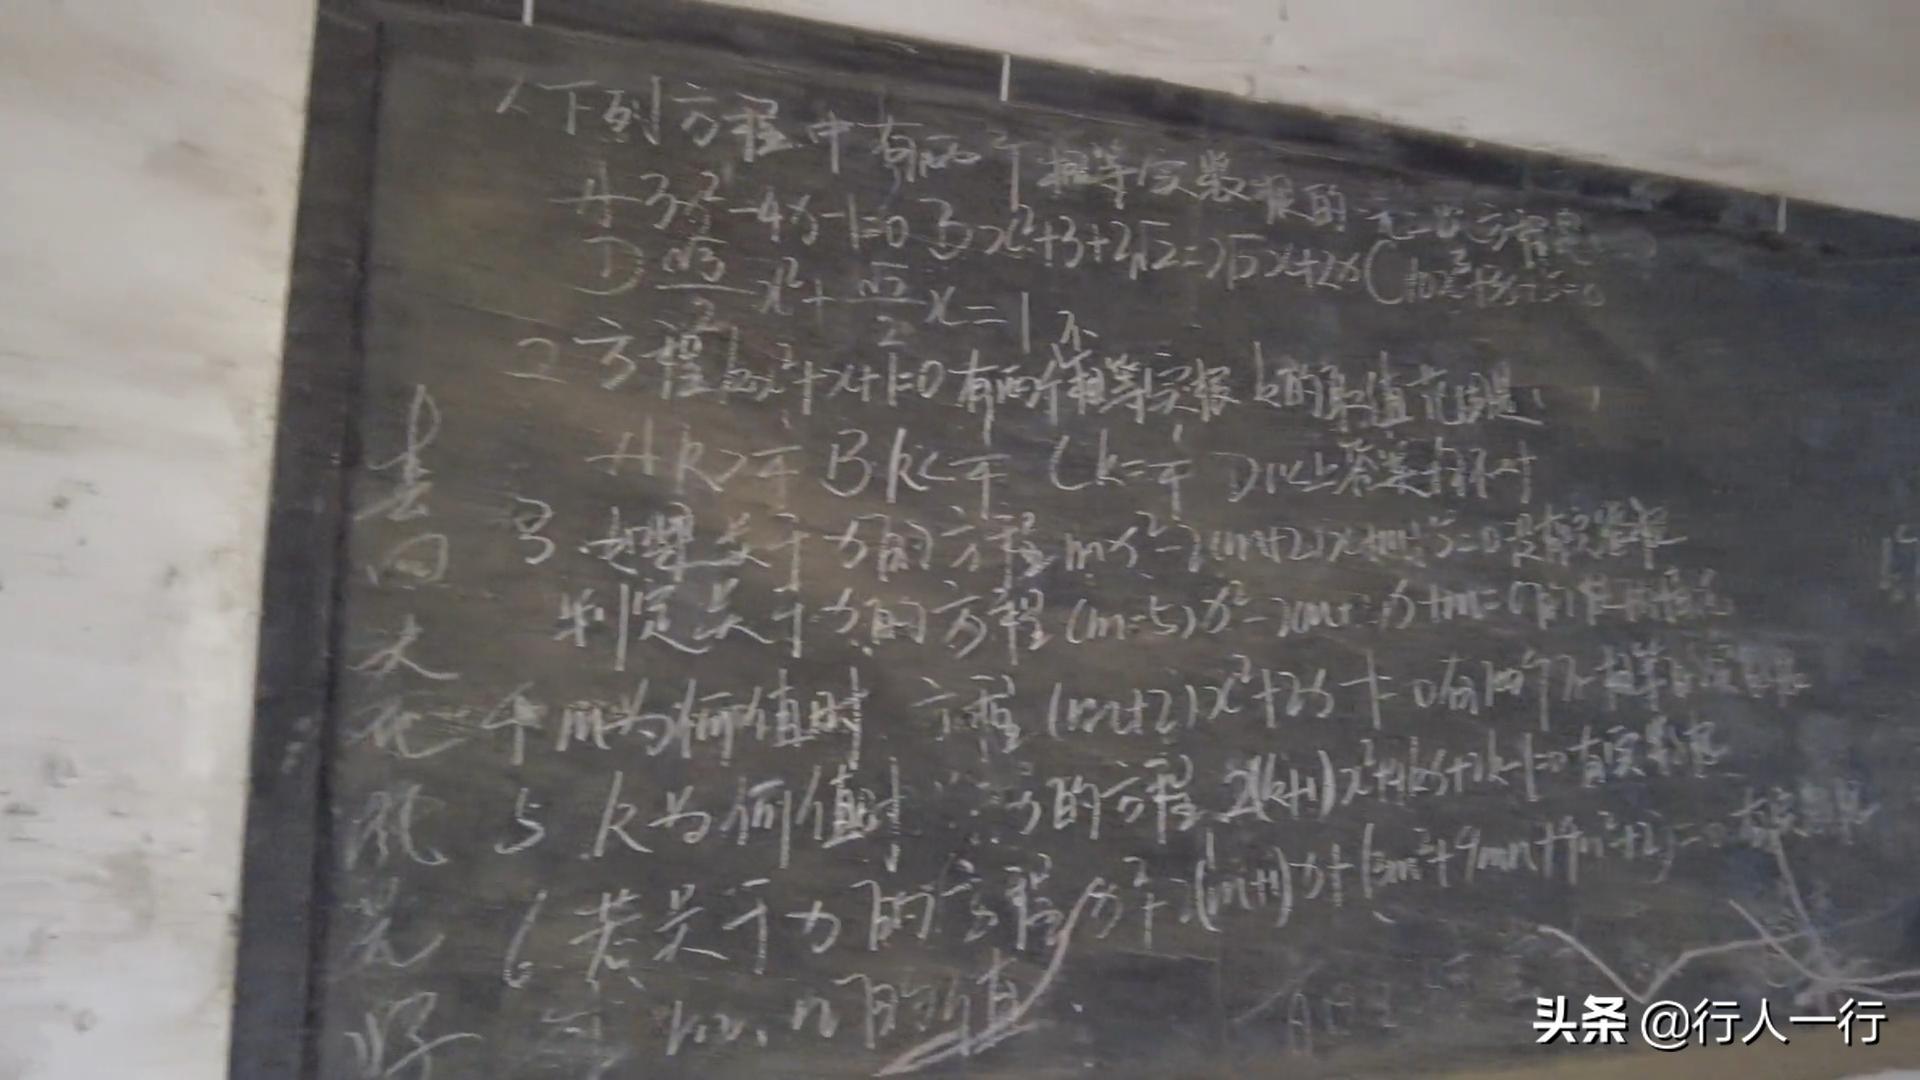 1、下列方程中有两个相等实数根的一元二次方程是
A 3x²-4x-1=0 B x²+3+2√2=2√2x+2x C 10x²+
D √3/2 x²+√2/2 x=1
2 方程kx²+x+1=0有两个不相等实根k的取值范围是
A k>1/4 B k<1/4 C k=1/4 D 以上答案均不对
3、如果关于x的方程mx²-2(m+2)x+m+5=0没有实数根
判定关于x的方程(m-5)x²-2(m+ x+m=0的根的情况
4 m为何值时 方程(m+2)x²+2x-1=0有两个不相等的实数根
5 k为何值时 x的方程2(k+1)x²+4kx+2k-1=0有实数根
6 若关于x的方程x²+2(m+1)x+(3m²+4mn+4n²+2)=0有实数根
m、n的值
去
向
大
死
风
是
好
头条 @行人一行